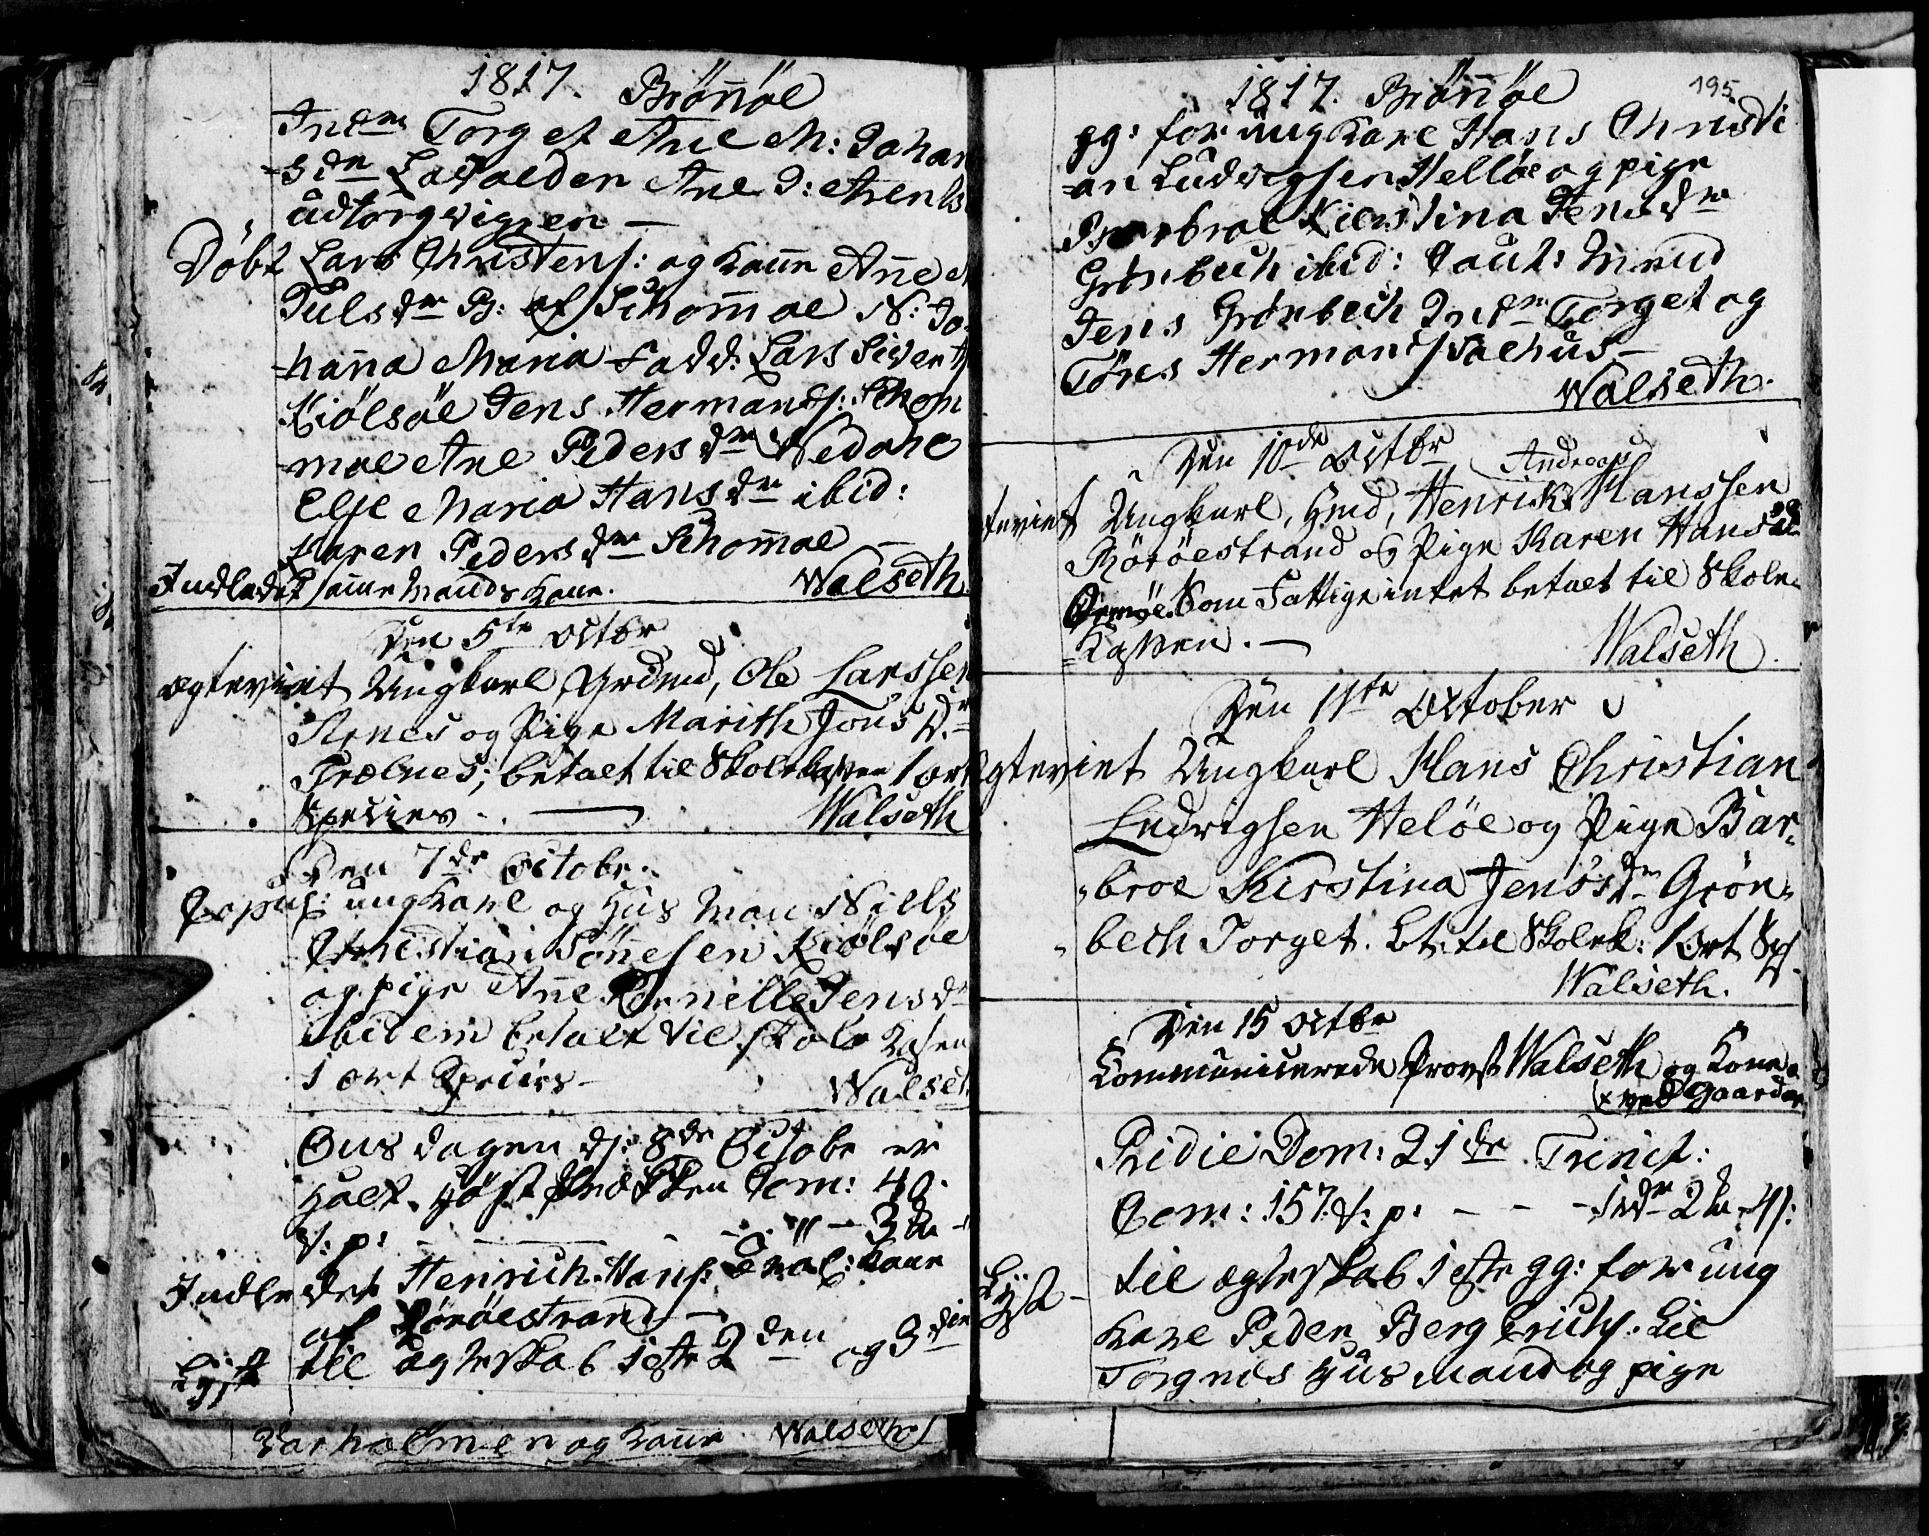 1817. Brönöe
Torget Ane M: Johan
Ane J: Arents
udtorgvigen —
Döbt Lars Christens: og Kone Ane
Julsdr B: af Schomoe N: Jo-
hana Maria Fadd: Lars Siverts
Kiölsöe Jens Hermands: Schom
moe Ane Pedersdr Wedahe
Else Maria Hansdr ibid:
Karen Pedersdr Schomoe —
Indledet samme Mands Kone. Walseth
Den 5te Octbr
ægteviet Ungkarl, Grdmd, Ole Larssen
og Pige Marith Jons Dr
Trælnes; betalt til Skolekassen 1 ort
Species. — Walseth
Den 7de Octobr.
Copul: ungKarl og Huus Man Niels
Christian Sönesen Kiölsöe
og pige Ane Pernille Jensdr
ibidem betalt til skole Kasen
1 ort Species — Walseth
Onsdagen d: 8de Octobr er
Halt Höst Prædiken Com: 40.
s: p:
Indledet Henrich Hans: Kone
af Röröestrand —
Lyst til ægteskab 1ste 2den og 3die
Varholmen og Kone Walseth
1817. Brönöe 195
gg: for ungKarl Hans Christi
an Ludvigsen Hellöe og pige
Barbroe Kierstina Jensdr
Grönbech ibid: Caut: Mend
Jens Grönbech Torget og
Tönes Hermands Salhus —
Walseth.
Den 10de Octbr
Andreas
teviet Ungkarl, Hmd, Henrik Hanssen
Röröestrand og Pige Karen Hansdr
Som Fattige intet betalt til Skole
Kassen. — Walseth.
Den 11te October
Ægteviet Ungkarl Hans Christian
Ludvigsen Helöe og Pige Bar-
broe Kirstina Jensdr Grön-
bech Torget. bt. til Skolek: 1 Ort Sp.
Walseth.
Den 15 Octbr
Communicerede Provst Walseth og Kone
ved Gaarden
Pridie Dom: 21de Trinit:
Com: 157. s: p: - - -
Lyst - til ægteskab 1ste gg: for ung
Karl Peder Berg Erichs: Lie
Torgnes Huusmand og pige